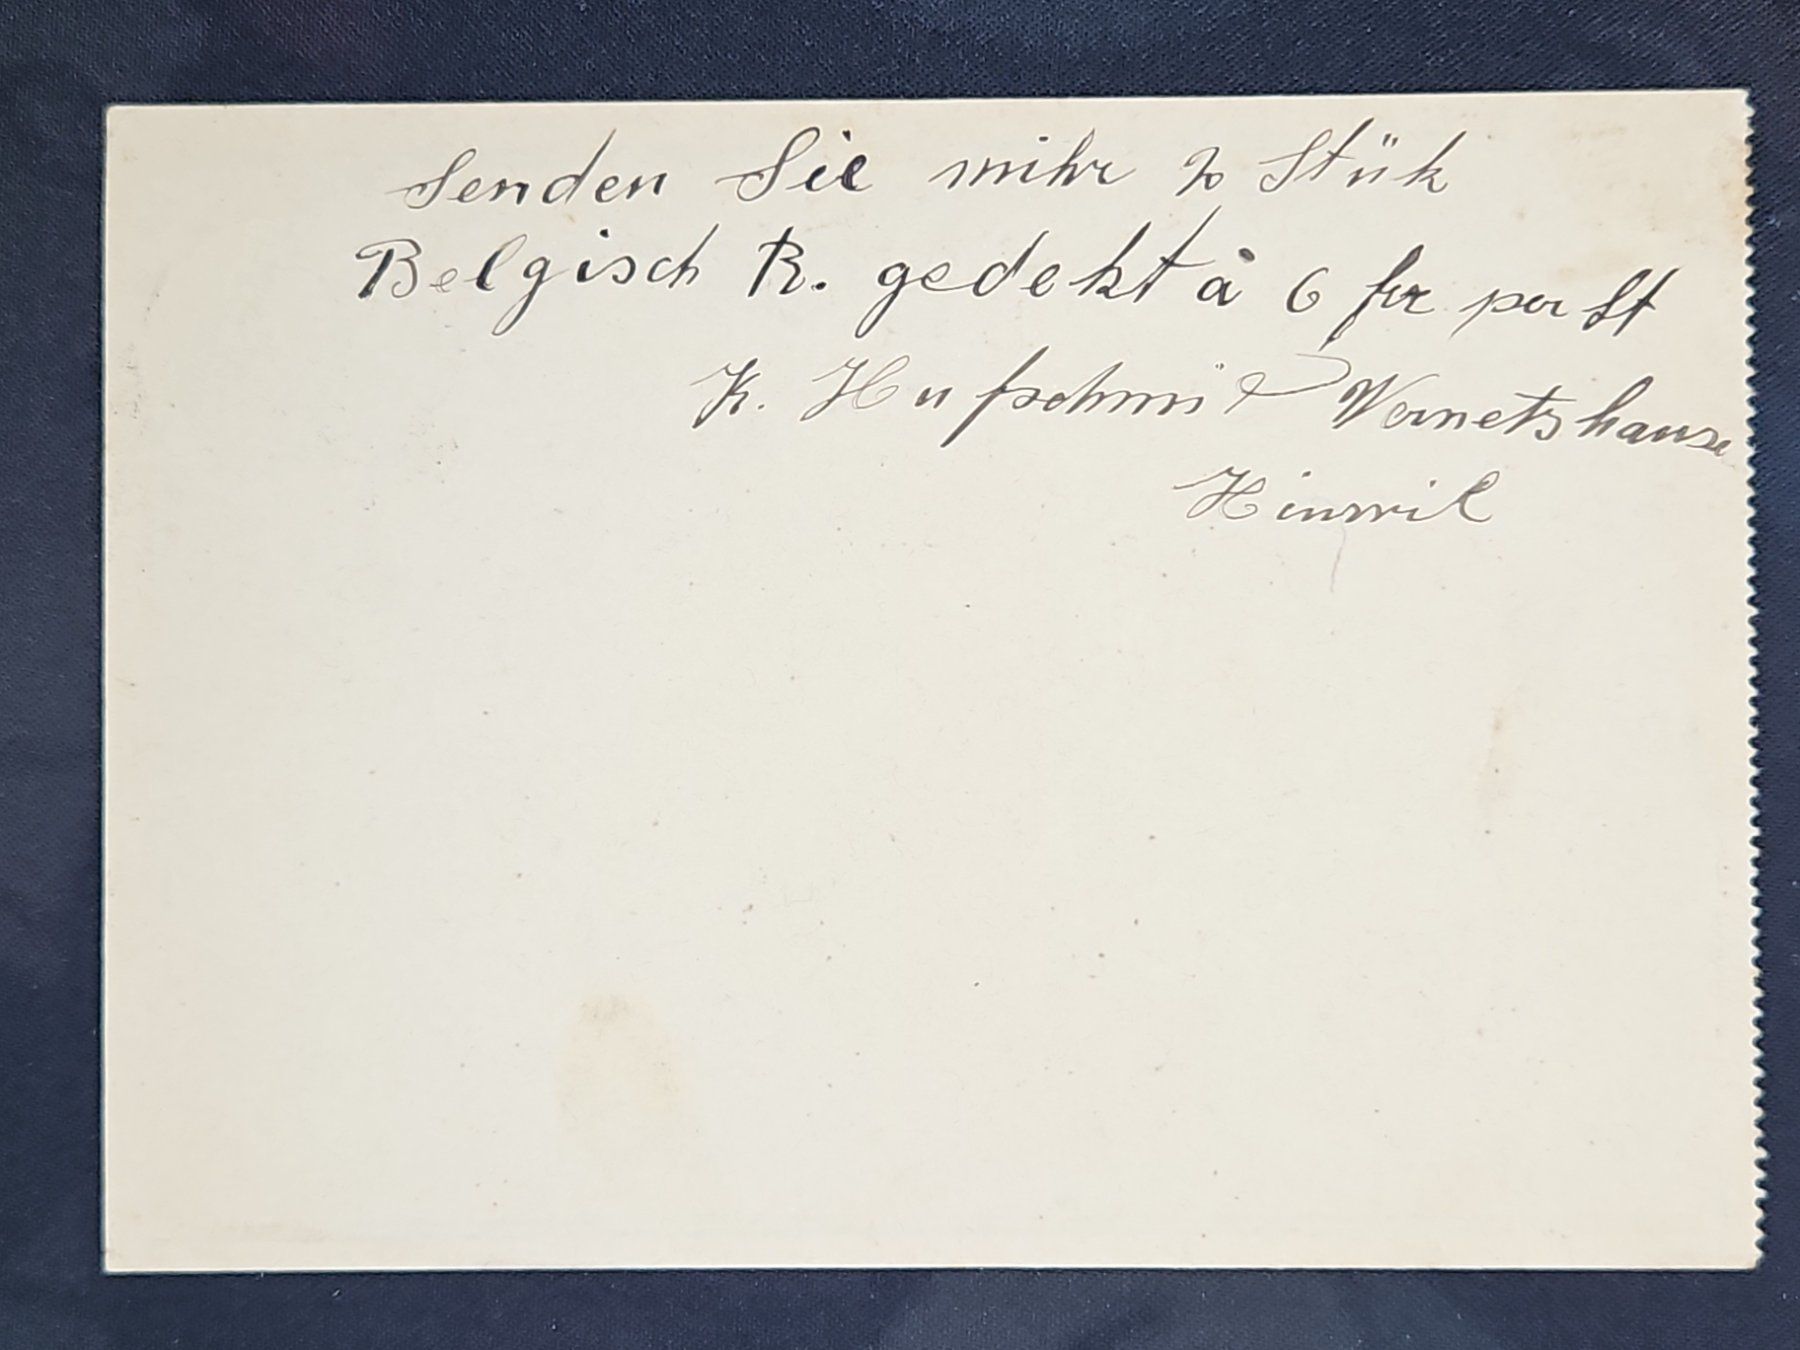 Senden Sie mihr 2 Stük
Belgisch R. gedekt à 6 frr per St
K. Hufschmid Wernetshause
Hinwil